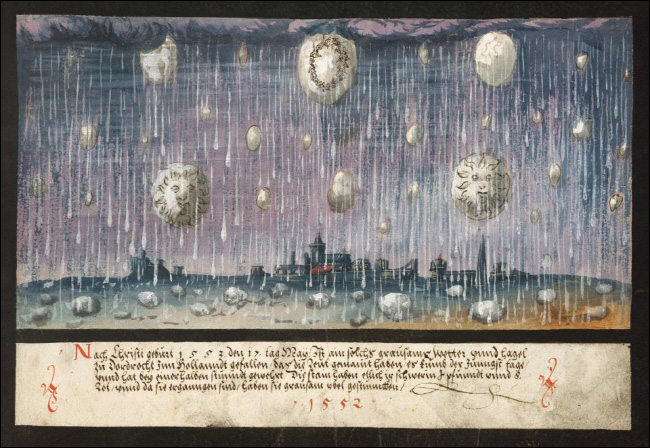 Nach Christi geburt 1552 den 17 tag May Ist ain solchs grausams wetter unnd hagel
zu Dordrecht Inn Hollanndt gefallen, das die Leut gemaint haben es kumb der Jungst tage
unnd hat bey ainer halben stunndt geweret. Die stain haben etlich schwerin pfunndt unnd
Lot unnd da sie erganngen sind haben sie grausam ubel gestunncken
1552